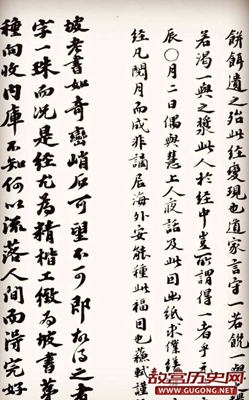 餅餌遺之殆此經變現也道家言字一若飢一與
若渴一與之漿此人於經中豈所謂得一者乎
辰〇月二日偶與慧上人夜話及此因出紙求僕繕
經凡閱月而成非謫居海外安能種此福田也蘇軾謹
坡老書如奇巒峭石可望不可即故得之者
字一珠而況是經尤為精楷工緻為坡書第
種向收內庫不知何以流落人間而得完好
故宫历史网